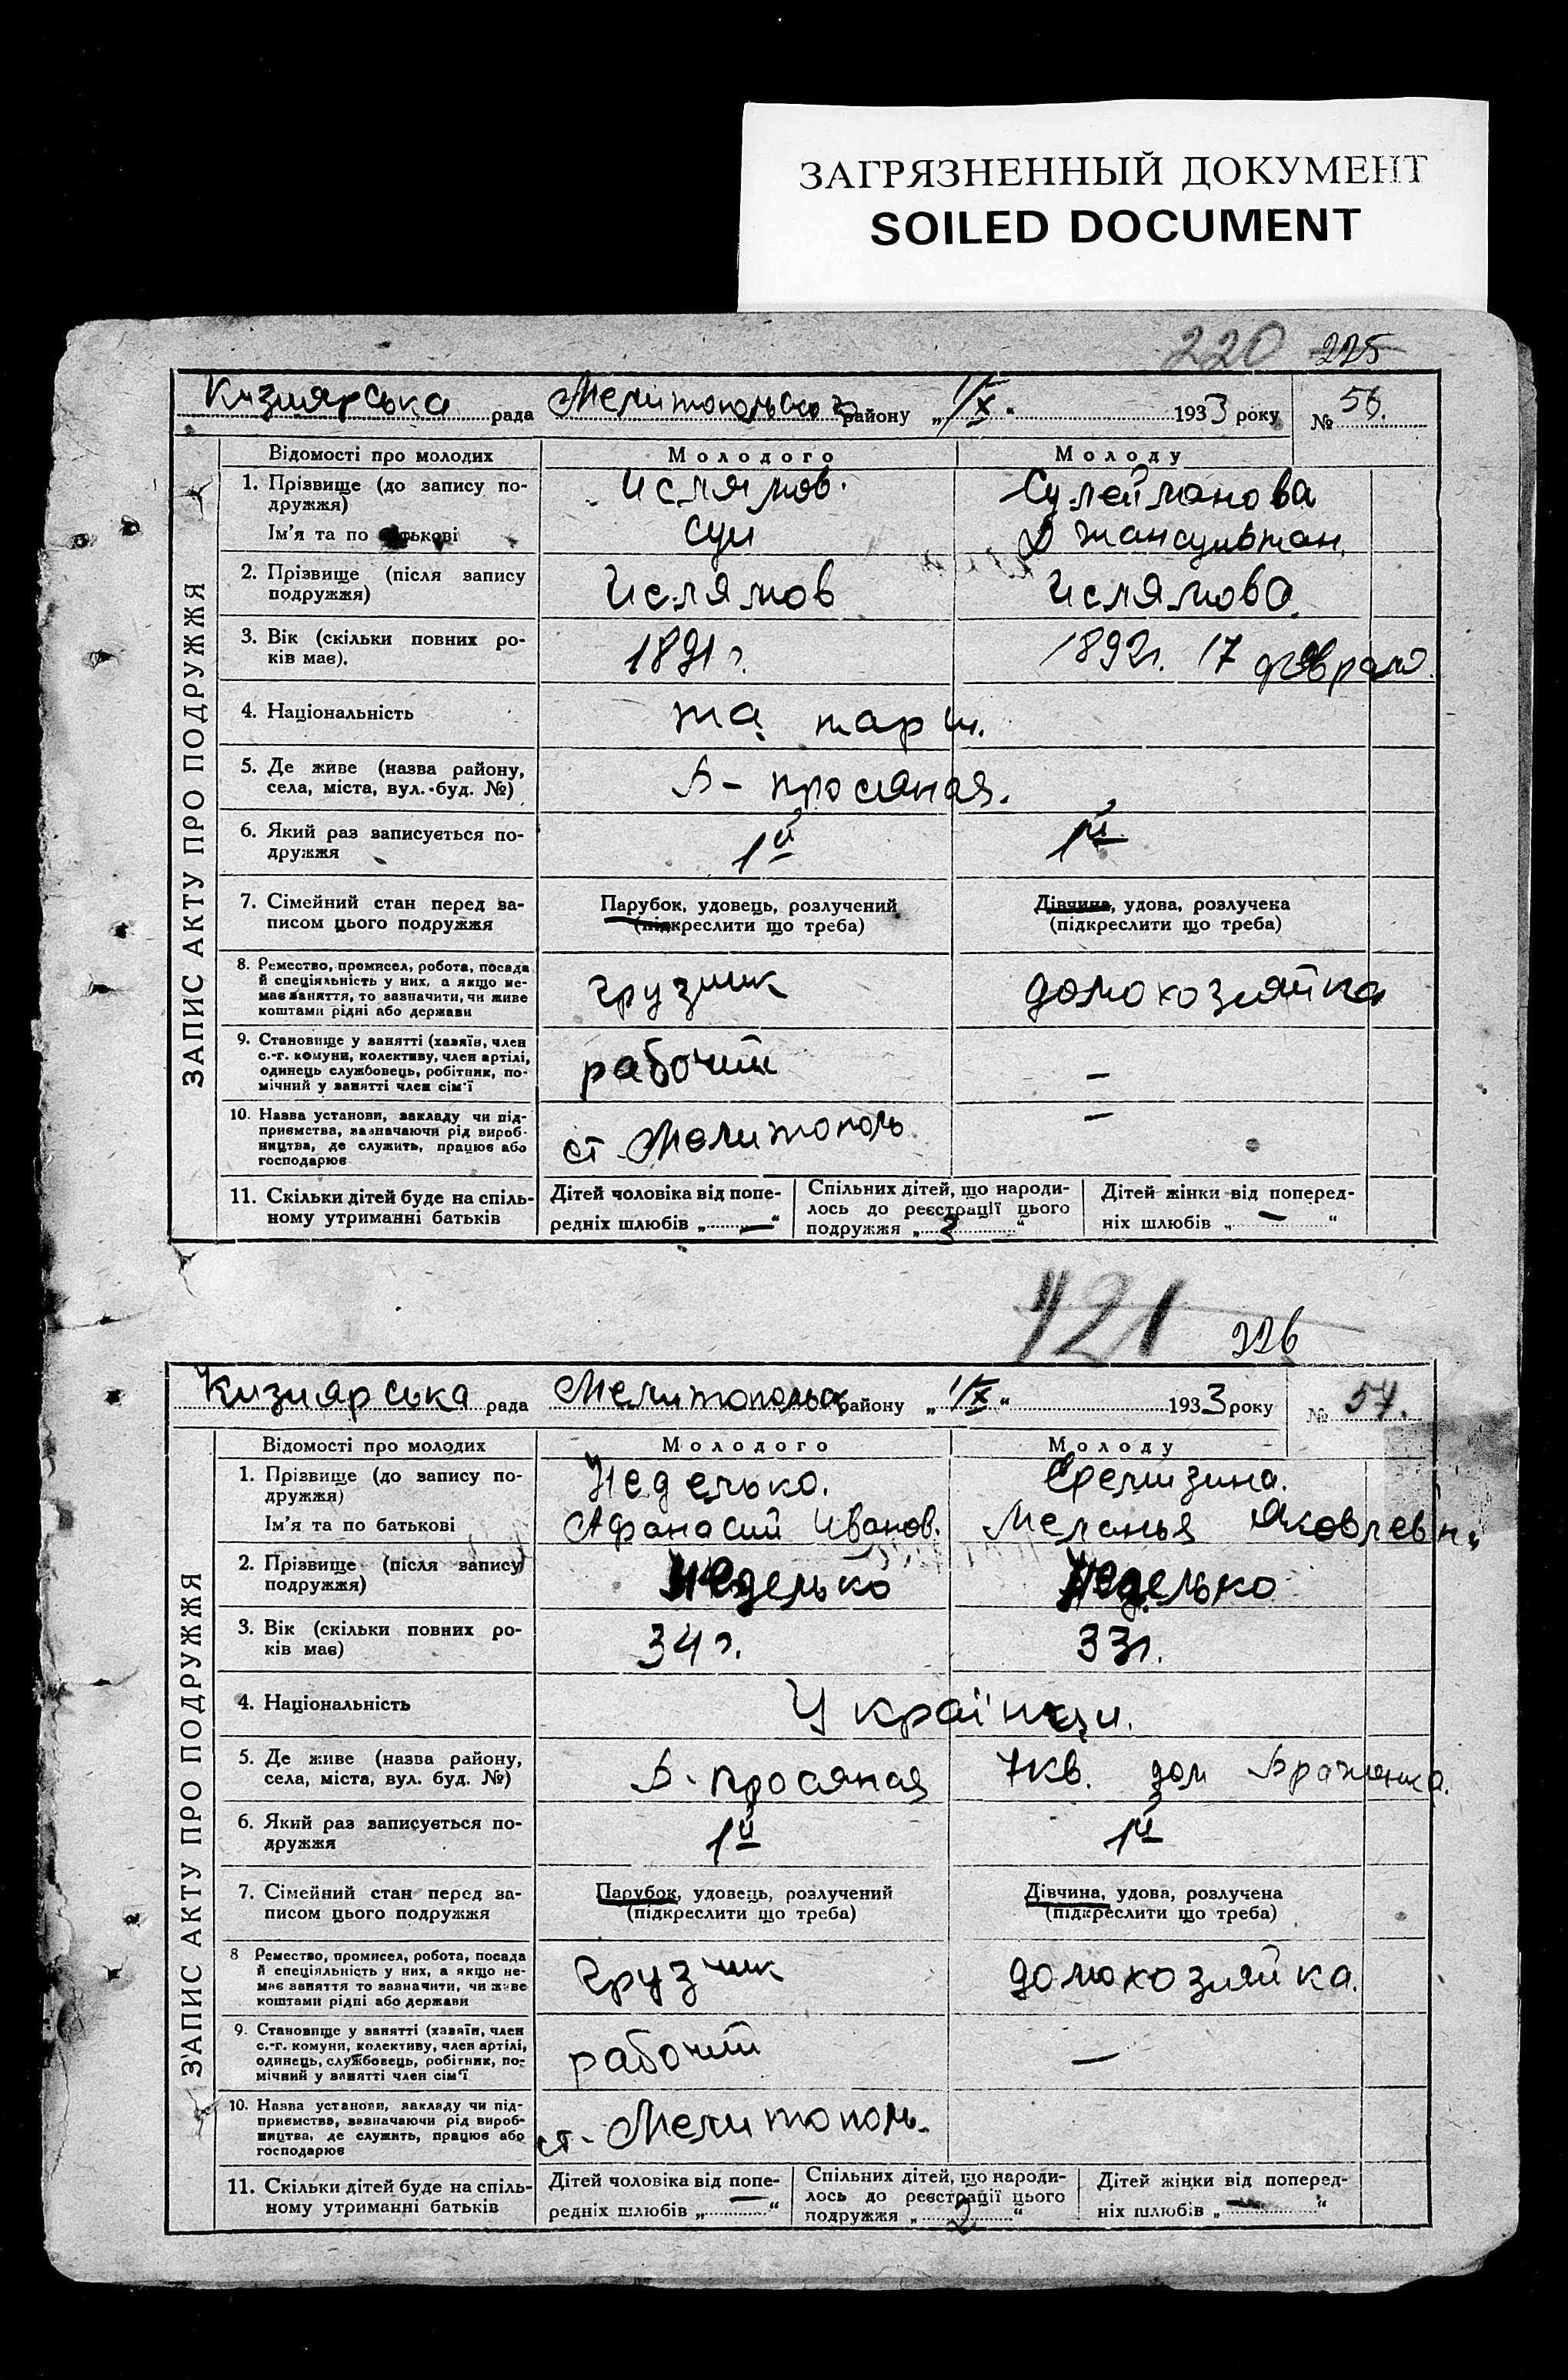 ЗАГРЯЗНЕННЫЙ ДОКУМЕНТ
SOILED DOCUMENT
220 225
Кизиярська рада Мелитопольського району „1/X“ 1933 року № 56.
ЗАПИС АКТУ ПРО ПОДРУЖЖЯ
Відомості про молодих Молодого Молоду
1. Прізвище (до запису по-
дружжя) Ислямов. Сулейманова
Ім'я та по батькові Суи Джансултан.
2. Прізвище (після запису
подружжя) Ислямов Ислямова
3. Вік (скільки повних ро-
ків має). 1891 г. 1892 г. 17 февраля.
4. Національність татари.
5. Де живе (назва району,
села, міста, вул. буд. №) Б-Просяная.
6. Який раз записується по-
дружжя 1й 1й
7. Сімейний стан перед за- Парубок, удовець, розлучений Дівчина, удова, розлучена
писом цього подружжя (підкреслити що треба) (підкреслити що треба)
8. Ремество, промисел, робота, посада
й спеціяльність у них, а якщо не-
має заняття, то зазначити, чи живе
коштами рідні або держави грузчик домохозяйка
9. Становище у занятті (хазяїн, член
с.-г. комуни, колективу, член артілі,
одинець службовець, робітник, по-
мічний у занятті член сім'ї рабочий —
10. Назва установи, закладу чи під-
приємства, зазначаючи рід вироб-
ництва, де служить, працює або
господарює ст Мелитополь —
11. Скільки дітей буде на спіль-
ному утриманні батьків
Дітей чоловіка від попе-
редніх шлюбів „—“
Спільних дітей, що народи-
лось до реєстрації цього
подружжя „3“
Дітей жінки від поперед-
ніх шлюбів „—“
121 226
Кизиярська рада Мелитопольск району „1/X“ 1933 року № 57.
ЗАПИС АКТУ ПРО ПОДРУЖЖЯ
Відомості про молодих Молодого Молоду
1. Прізвище (до запису по-
дружжя) Неделько. Еремизина.
Ім'я та по батькові Афанасий Иванов. Меланья Яковлевн.
2. Прізвище (після запису
подружжя) Неделько Неделько
3. Вік (скільки повних ро-
ків має) 34 г. 33 г.
4. Національність Українци.
5. Де живе (назва району,
села, міста, вул. буд. №) Б-Просяная 7 кв. дом
6. Який раз записується по-
дружжя 1й 1й
7. Сімейний стан перед за- Парубок, удовець, розлучений Дівчина, удова, розлучена
писом цього подружжя (підкреслити що треба) (підкреслити що треба)
8 Ремество, промисел, робота, посада
й спеціяльність у них, а якщо не-
має заняття то зазначити, чи живе
коштами рідні або держави грузчик домохозяйка.
9. Становище у занятті (хазяїн, член
с.-г. комуни, колективу, член артілі,
одинець, службовець, робітник, по-
мічний у занятті член сім'ї рабочий —
10. Назва установи, закладу чи під-
приємства, зазначаючи рід вироб-
ництва, де служить, працює або
господарює ст. Мелитополь.
11. Скільки дітей буде на спіль-
ному утриманні батьків
Дітей чоловіка від попе-
редніх шлюбів „—“
Спільних дітей, що народи-
лось до реєстрації цього
подружжя „2“
Дітей жінки від поперед-
ніх шлюбів „—“